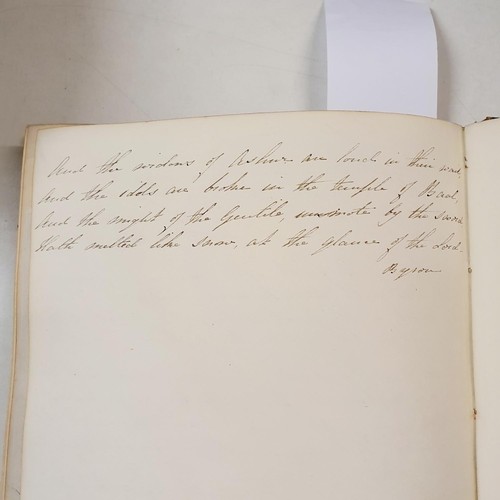 And the widows of Ashur are loud in their wail,
And the idols are broke in the temple of Baal,
And the might of the Gentile, unsmote by the sword
Hath melted like snow, at the glance of the Lord.
Byron